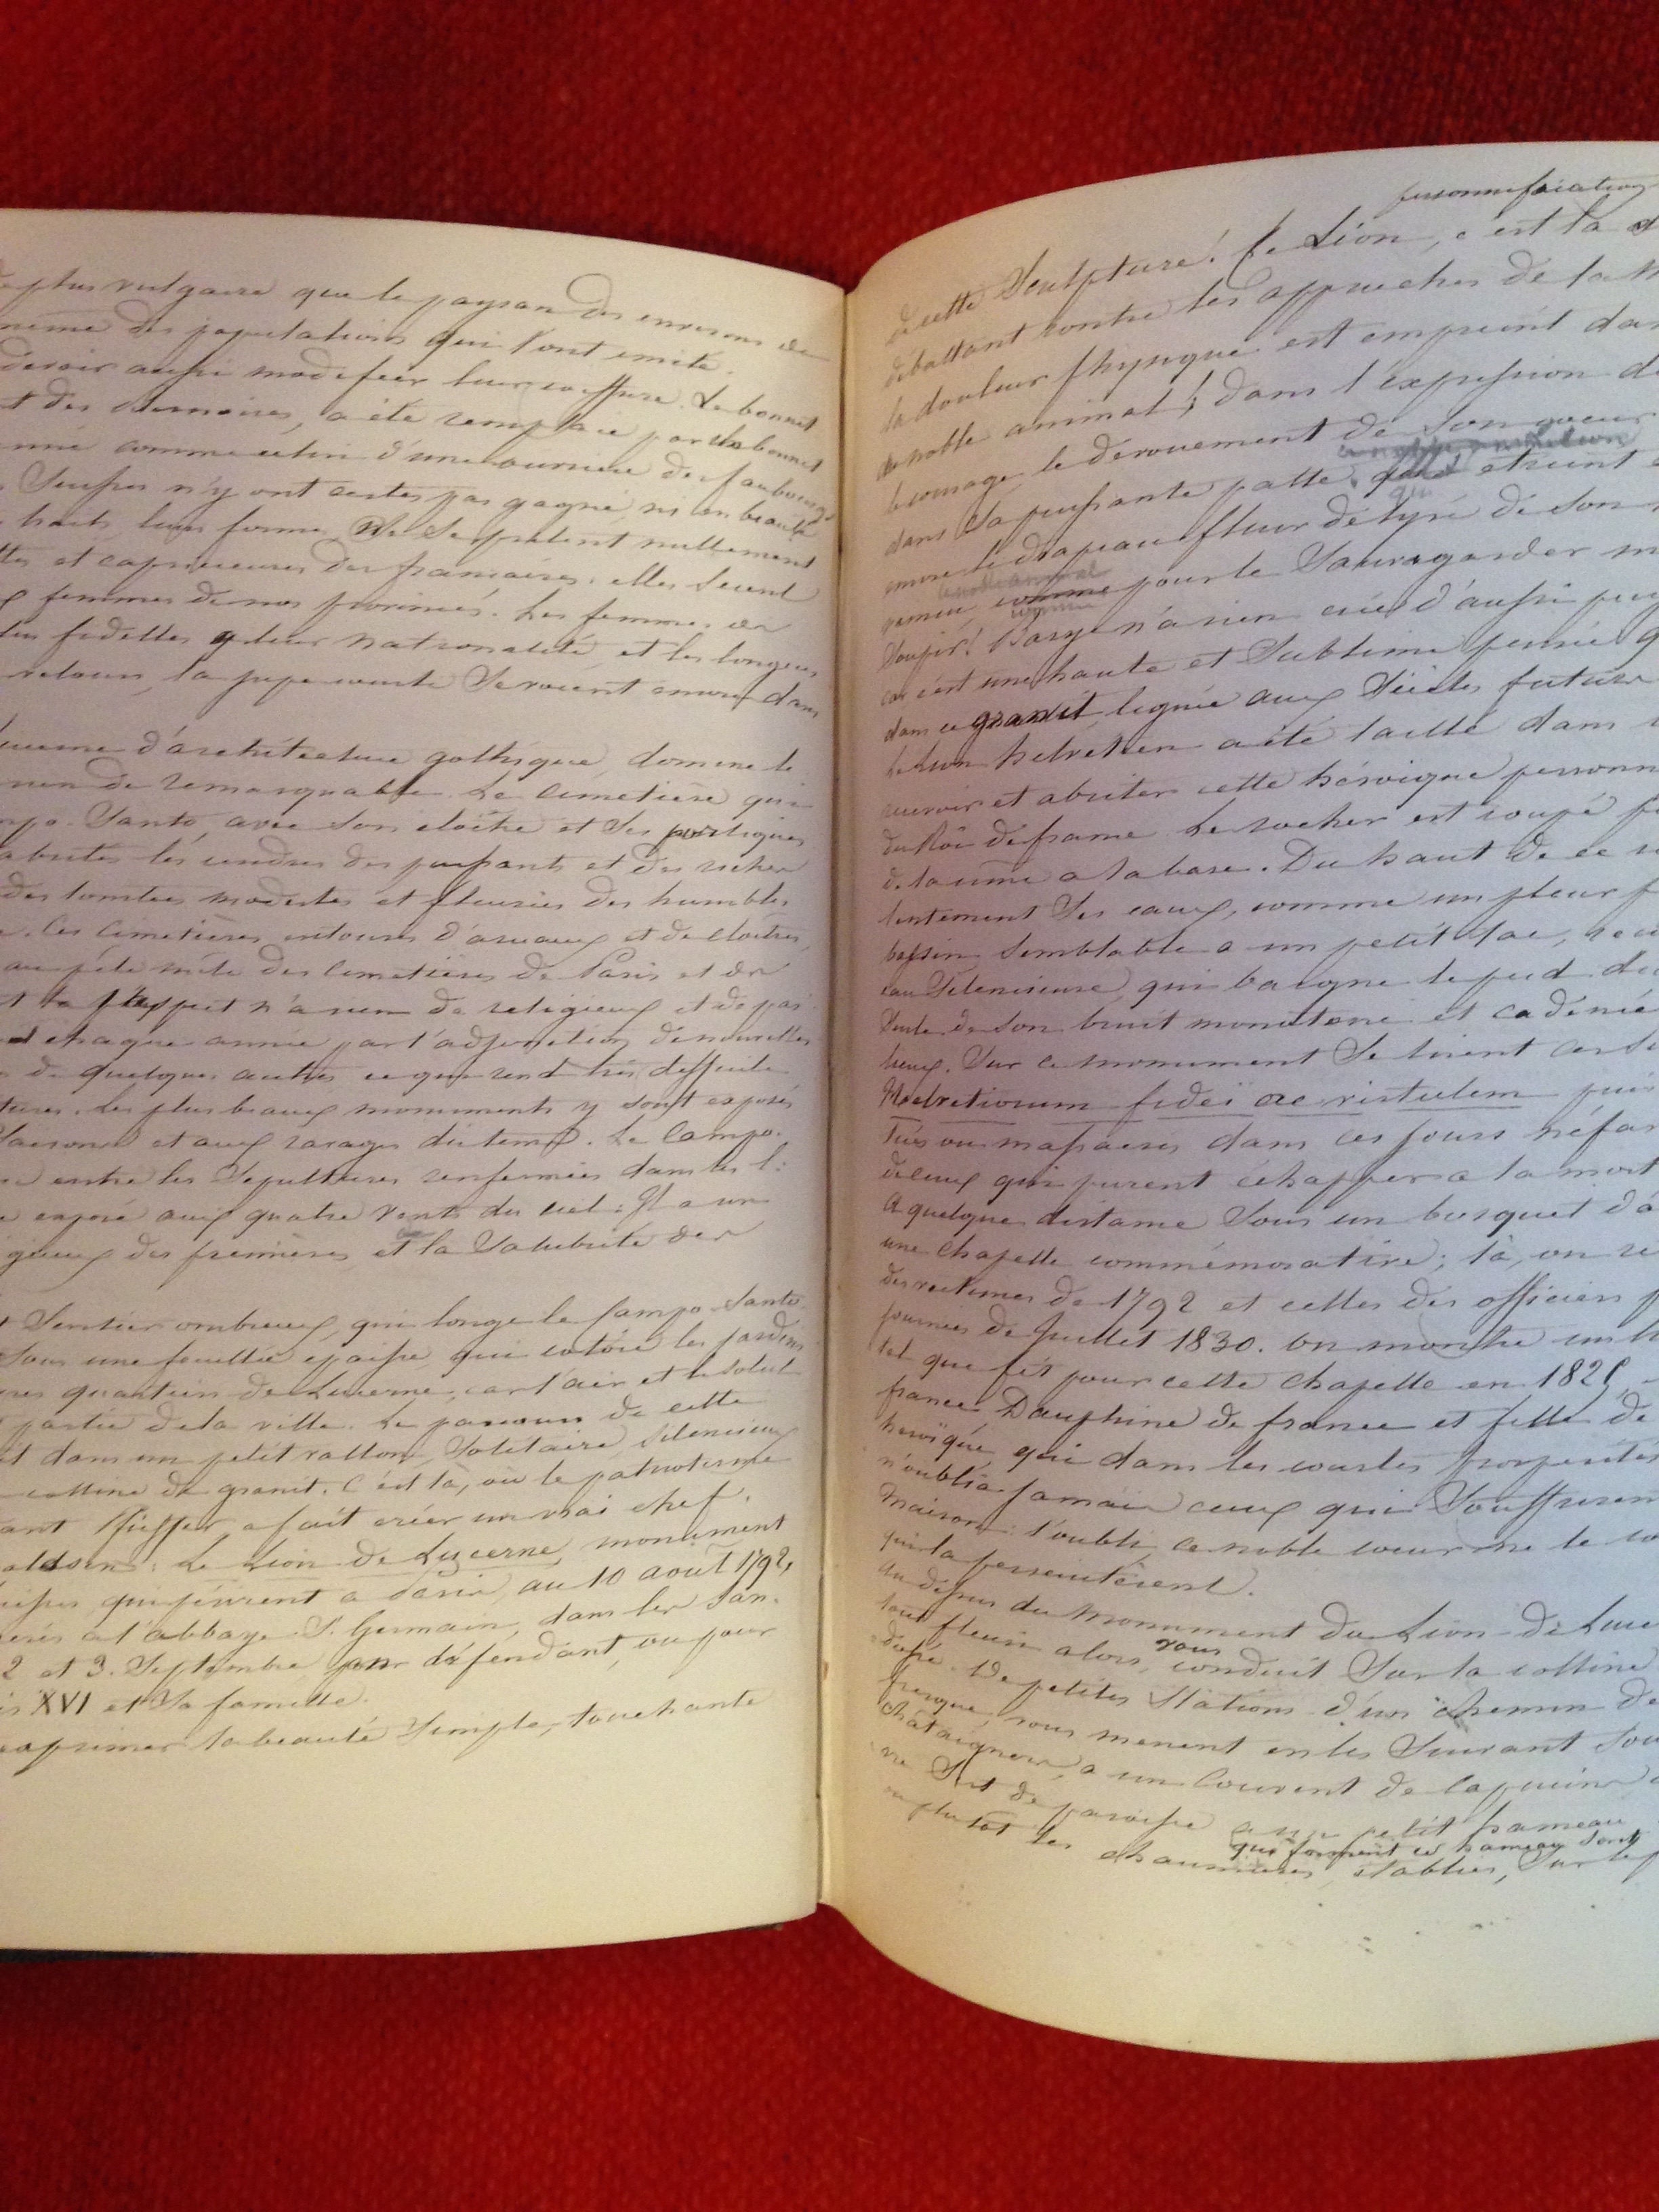 plus vulgaire que le paysan des environs de
même des populations qui l'ont imité.
devoir aussi modifier leur coiffure. Le bonnet
t des Bernoises, a été remplacé par un bonnet
comme celui d'une ouvrière des faubourgs
Suisses n'y ont certes pas gagné, ni en beauté
traits, leurs formes, ne se prêtent nullement
et capricieuses des françaises. elles seient
femmes de nos provinces. Les femmes de
plus fidelles a leur nationalité, et les longues
velours, la jupe courte se voient encore dans
Lucerne d'architecture gothique, domine le
rien de remarquable. Le Cimetière qui
mpo-Santo, avec son cloître et ses portiques
abrites les cendres des puissants et des riches
des tombes modestes et fleuries des humbles
Ces Cimetières entourés d'arceaux et de cloîtres,
au pêle mêle des Cimetières de Paris et de
n'a rien de religieux et de pai
chaque année par l'adjonction de nouvelles
de quelques autres ce qui rend très difficile
Les plus beaux monuments y sont exposés
saisons et aux ravages du temps. Le Campo-
entre les Sépultures renfermées dans les
exposé aux quatre vents du ciel: Il a un
gieux des premières et la Salubrité des
Sentier ombreux, qui longe le Campo-Santo
sous une feuillée épaisse, qui cotoie les jardins
quartiers de Lucerne; car l'air et le soleil
partie de la ville. Le parcours de cette
dans un petit vallon, Solitaire, Silencieux
colline de granit. C'est là, où le patriotisme
ant Pfiffer, a fait créer un vrai chef.
aldsen: Le Lion de Lucerne, monument
uisses, qui périrent a Paris, au 10 août 1792,
crés a l'abbaye S.t Germain, dans les Jan.
2 et 3. Septembre, en défendant, ou pour
is XVI et sa famille.
exprimer la beauté simple, touchante
personnification
de cette Sculpture! Le Lion, c'est la
débattant contre les approches de la m
la douleur physique est empreint dan
du noble animal; dans l'expression de
le courage, le dévouement de son coeur
dans sa puissante patte, qui étreint
encore le drapeau fleur de lysé de son
comme pour le Sauvegarder
Soupir! Barye n'a rien créé d'aussi
car c'est une haute et Sublime pensée q
dans ce granit, léguée aux Siècles futurs
Le Lion helvétien a été taillé dans
recevoir et abriter cette héroïque personn
du Roi de france. Le rocher est coupé
de la cime a la base. Du haut de ce
lentement ses eaux, comme un pleur
bassin semblable a un petit lac, re
eau Silencieuse, qui baigne le pied du
Seule de son bruit monotone et cadencé
lieux. Sur ce monument se lisent ces
Helvetiorum fideï ac virtutem puis
tués ou massacrés dans ces jours néfas
de ceux qui purent échapper a la mort
A quelque distance sous un bosquet d'a
une Chapelle commémorative; là, on
des victimes de 1792 et celles des officiers
journées de Juillet 1830. on montre un
tel que fit pour cette Chapelle en 1825,
france, Dauphine de france et fille de
héroïque, qui dans les courtes prospérités
n'oublia jamais ceux qui souffrirent
Maison: l'oubli, ce noble coeur ne le co
qui la persécutèrent.
Au dessus du Monument du Lion de Luce
tout fleuri alors, vous conduit sur la colline
De petites Stations d'un chemin de
fresque, vous mènent en les suivant sou
châtaigners, a un Couvent de Capucins
Sert de paroisse a un petit hameau
qui forment ce hameau sont
ou plutôt les chaumières, établies, sur le